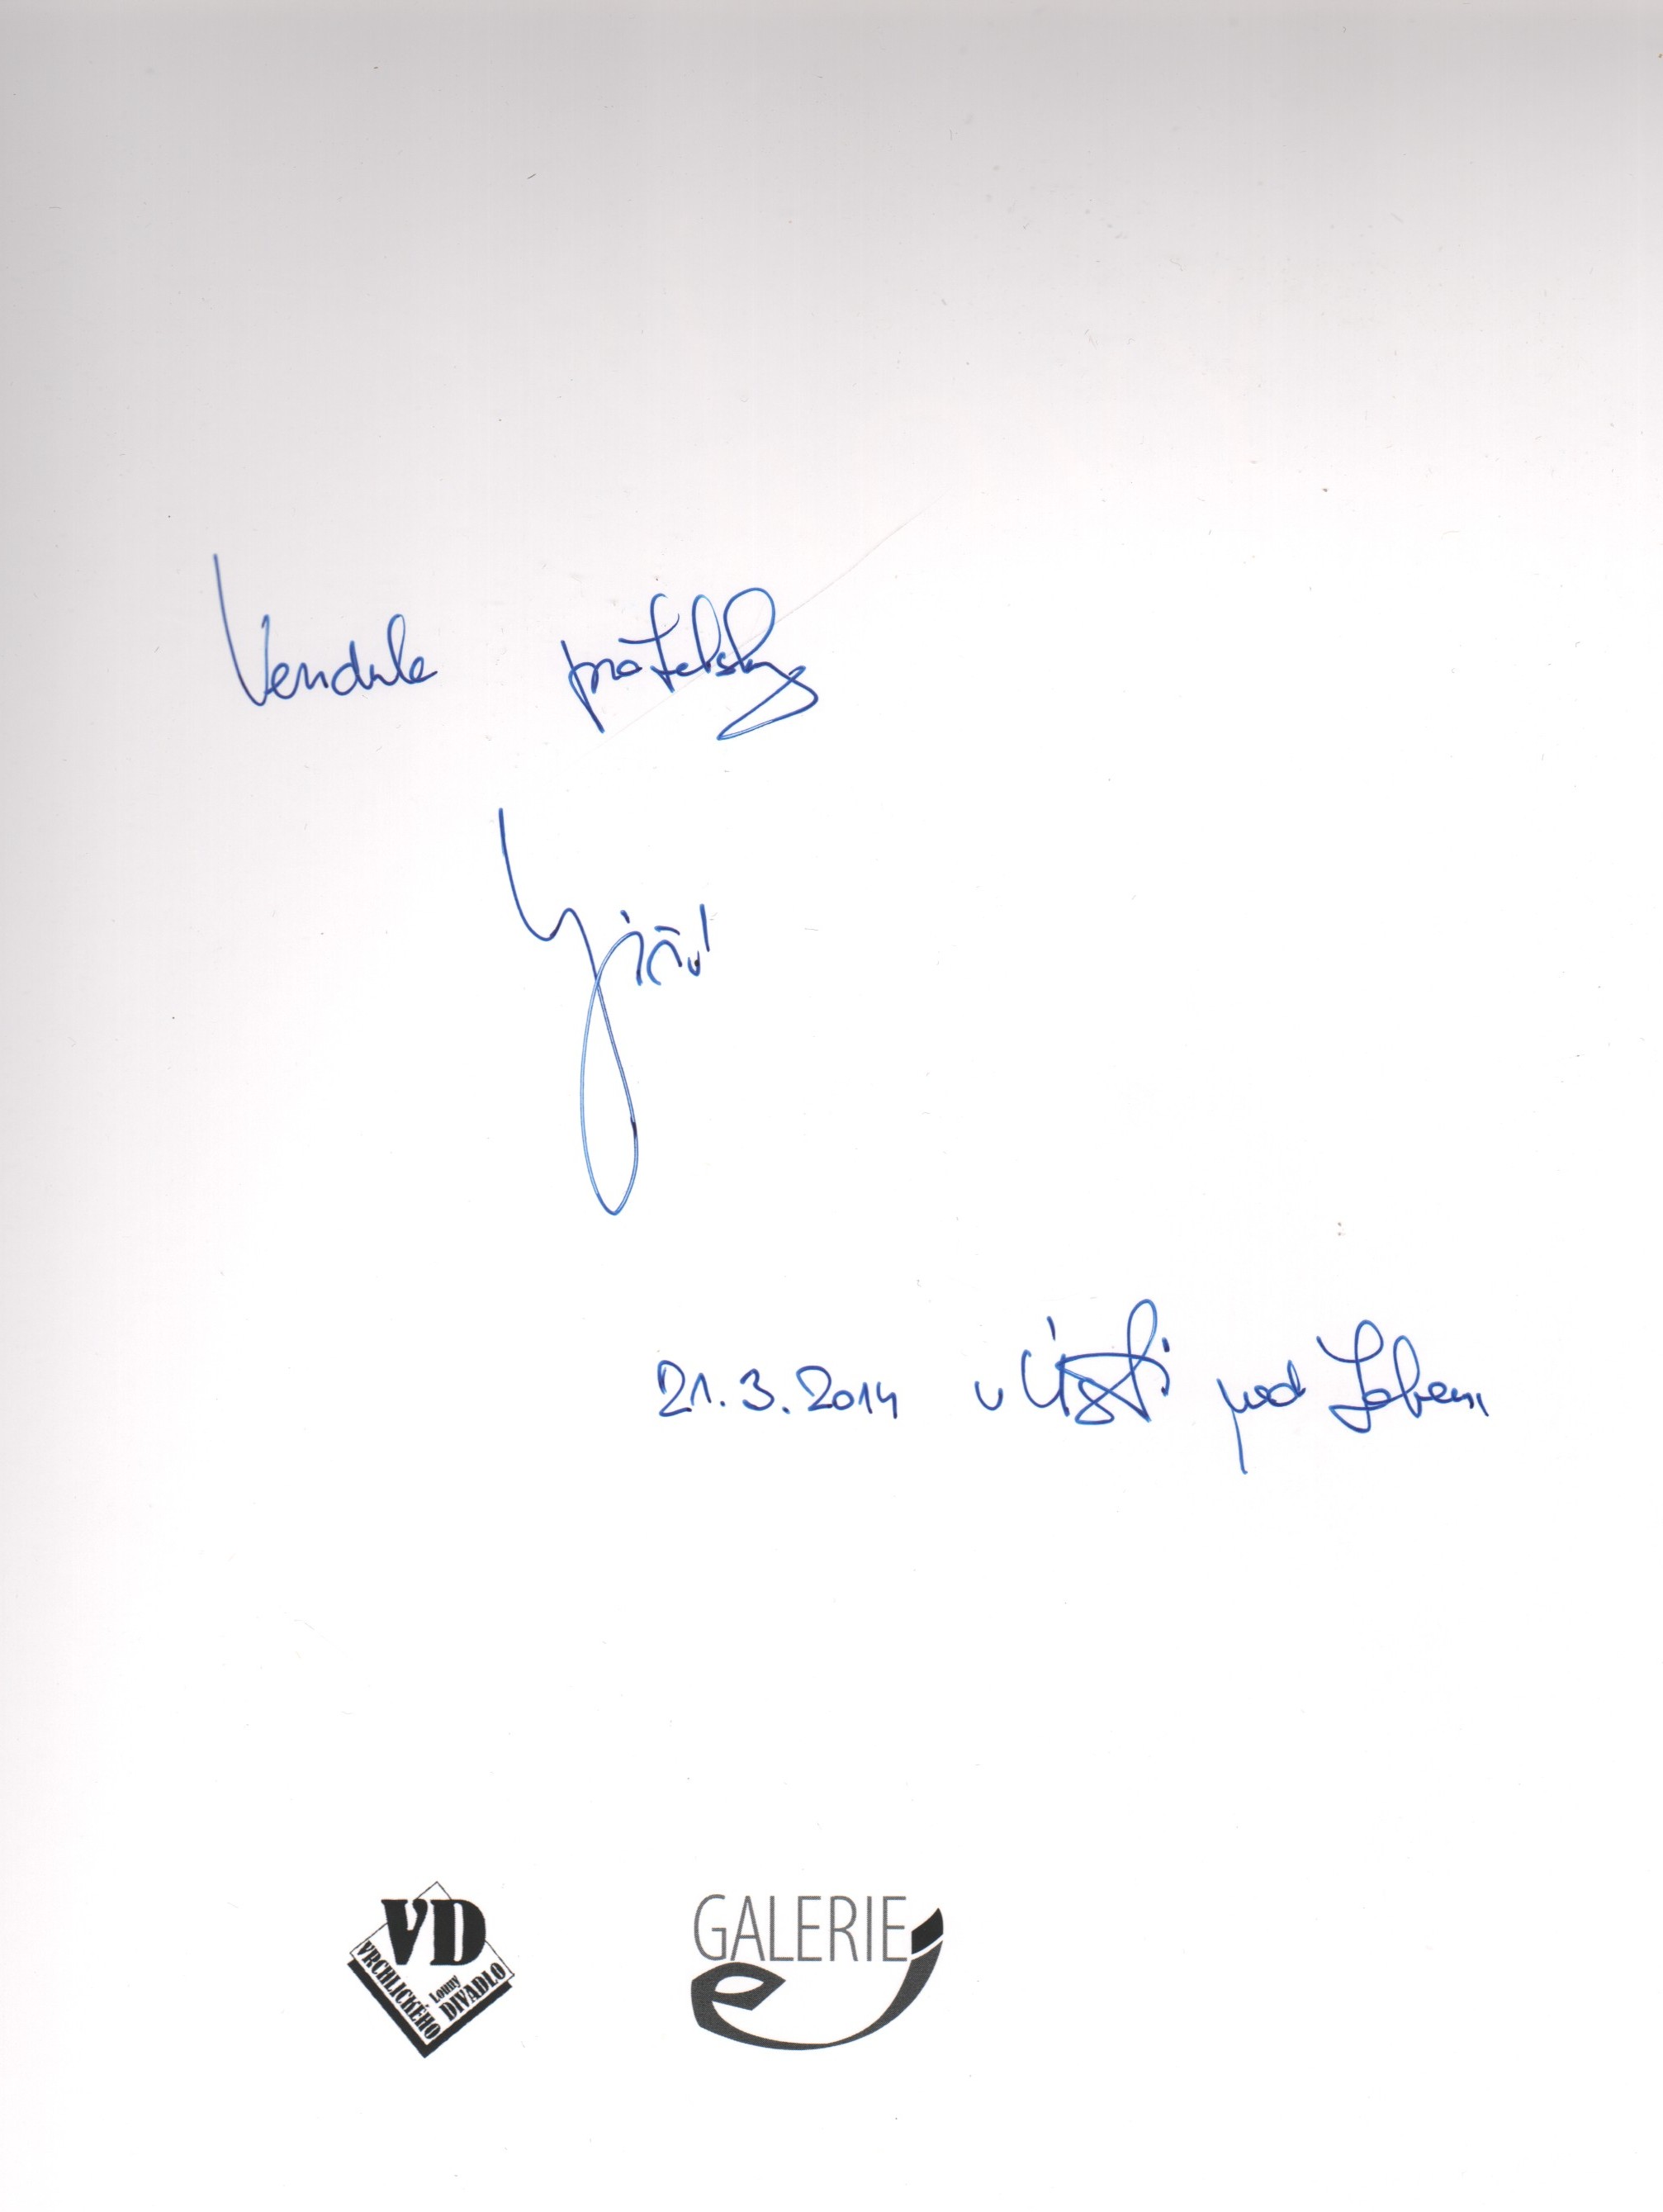 Vendule přátelsky
21.3.2014 v Ústí pod Labem
VD
VRCHLICKÉHO
Louny
DIVADLO
GALERIE